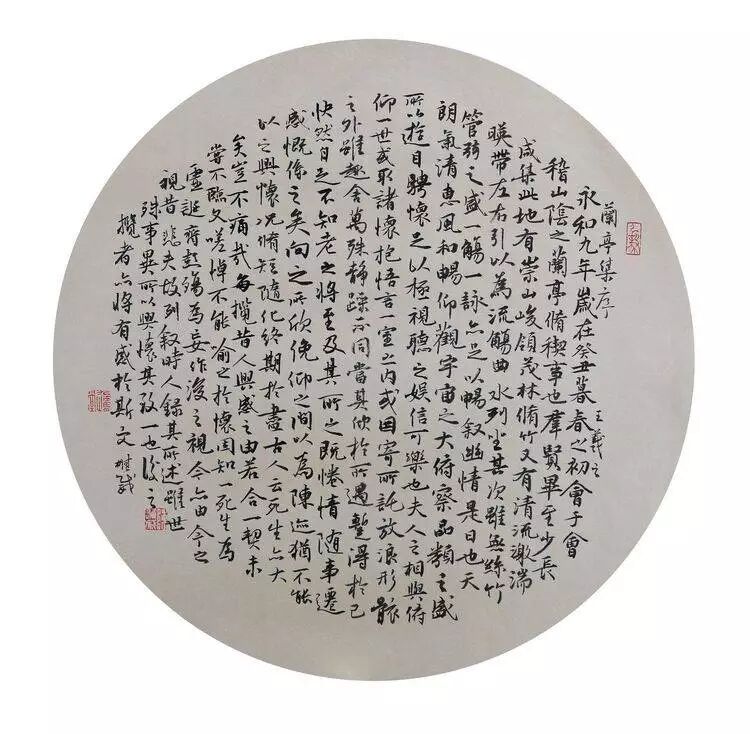 蘭亭集序 王羲之
永和九年歲在癸丑暮春之初會于會
稽山陰之蘭亭脩稧事也羣賢畢至少長
咸集此地有崇山峻領茂林脩竹又有清流激湍
暎帶左右引以為流觴曲水列坐其次雖無絲竹
管弦之盛一觴一詠亦足以暢敘幽情是日也天
朗氣清惠風和暢仰觀宇宙之大俯察品類之盛
所以遊目騁懷足以極視聽之娛信可樂也夫人之相與俯
仰一世或取諸懷抱悟言一室之内或因寄所託放浪形骸
之外雖趣舍萬殊靜躁不同當其欣於所遇蹔得於己
怏然自足不知老之將至及其所之既惓情隨事遷
感慨係之矣向之所欣俛仰之間以為陳迹猶不能
以之興懷況脩短隨化終期於盡古人云死生亦大
矣豈不痛哉每攬昔人興感之由若合一契未
嘗不臨文嗟悼不能喻之於懷固知一死生為
虛誕齊彭殤為妄作後之視今亦由今之
視昔悲夫故列敘時人錄其所述雖世
殊事異所以興懷其致一也後之
攬者亦將有感於斯文